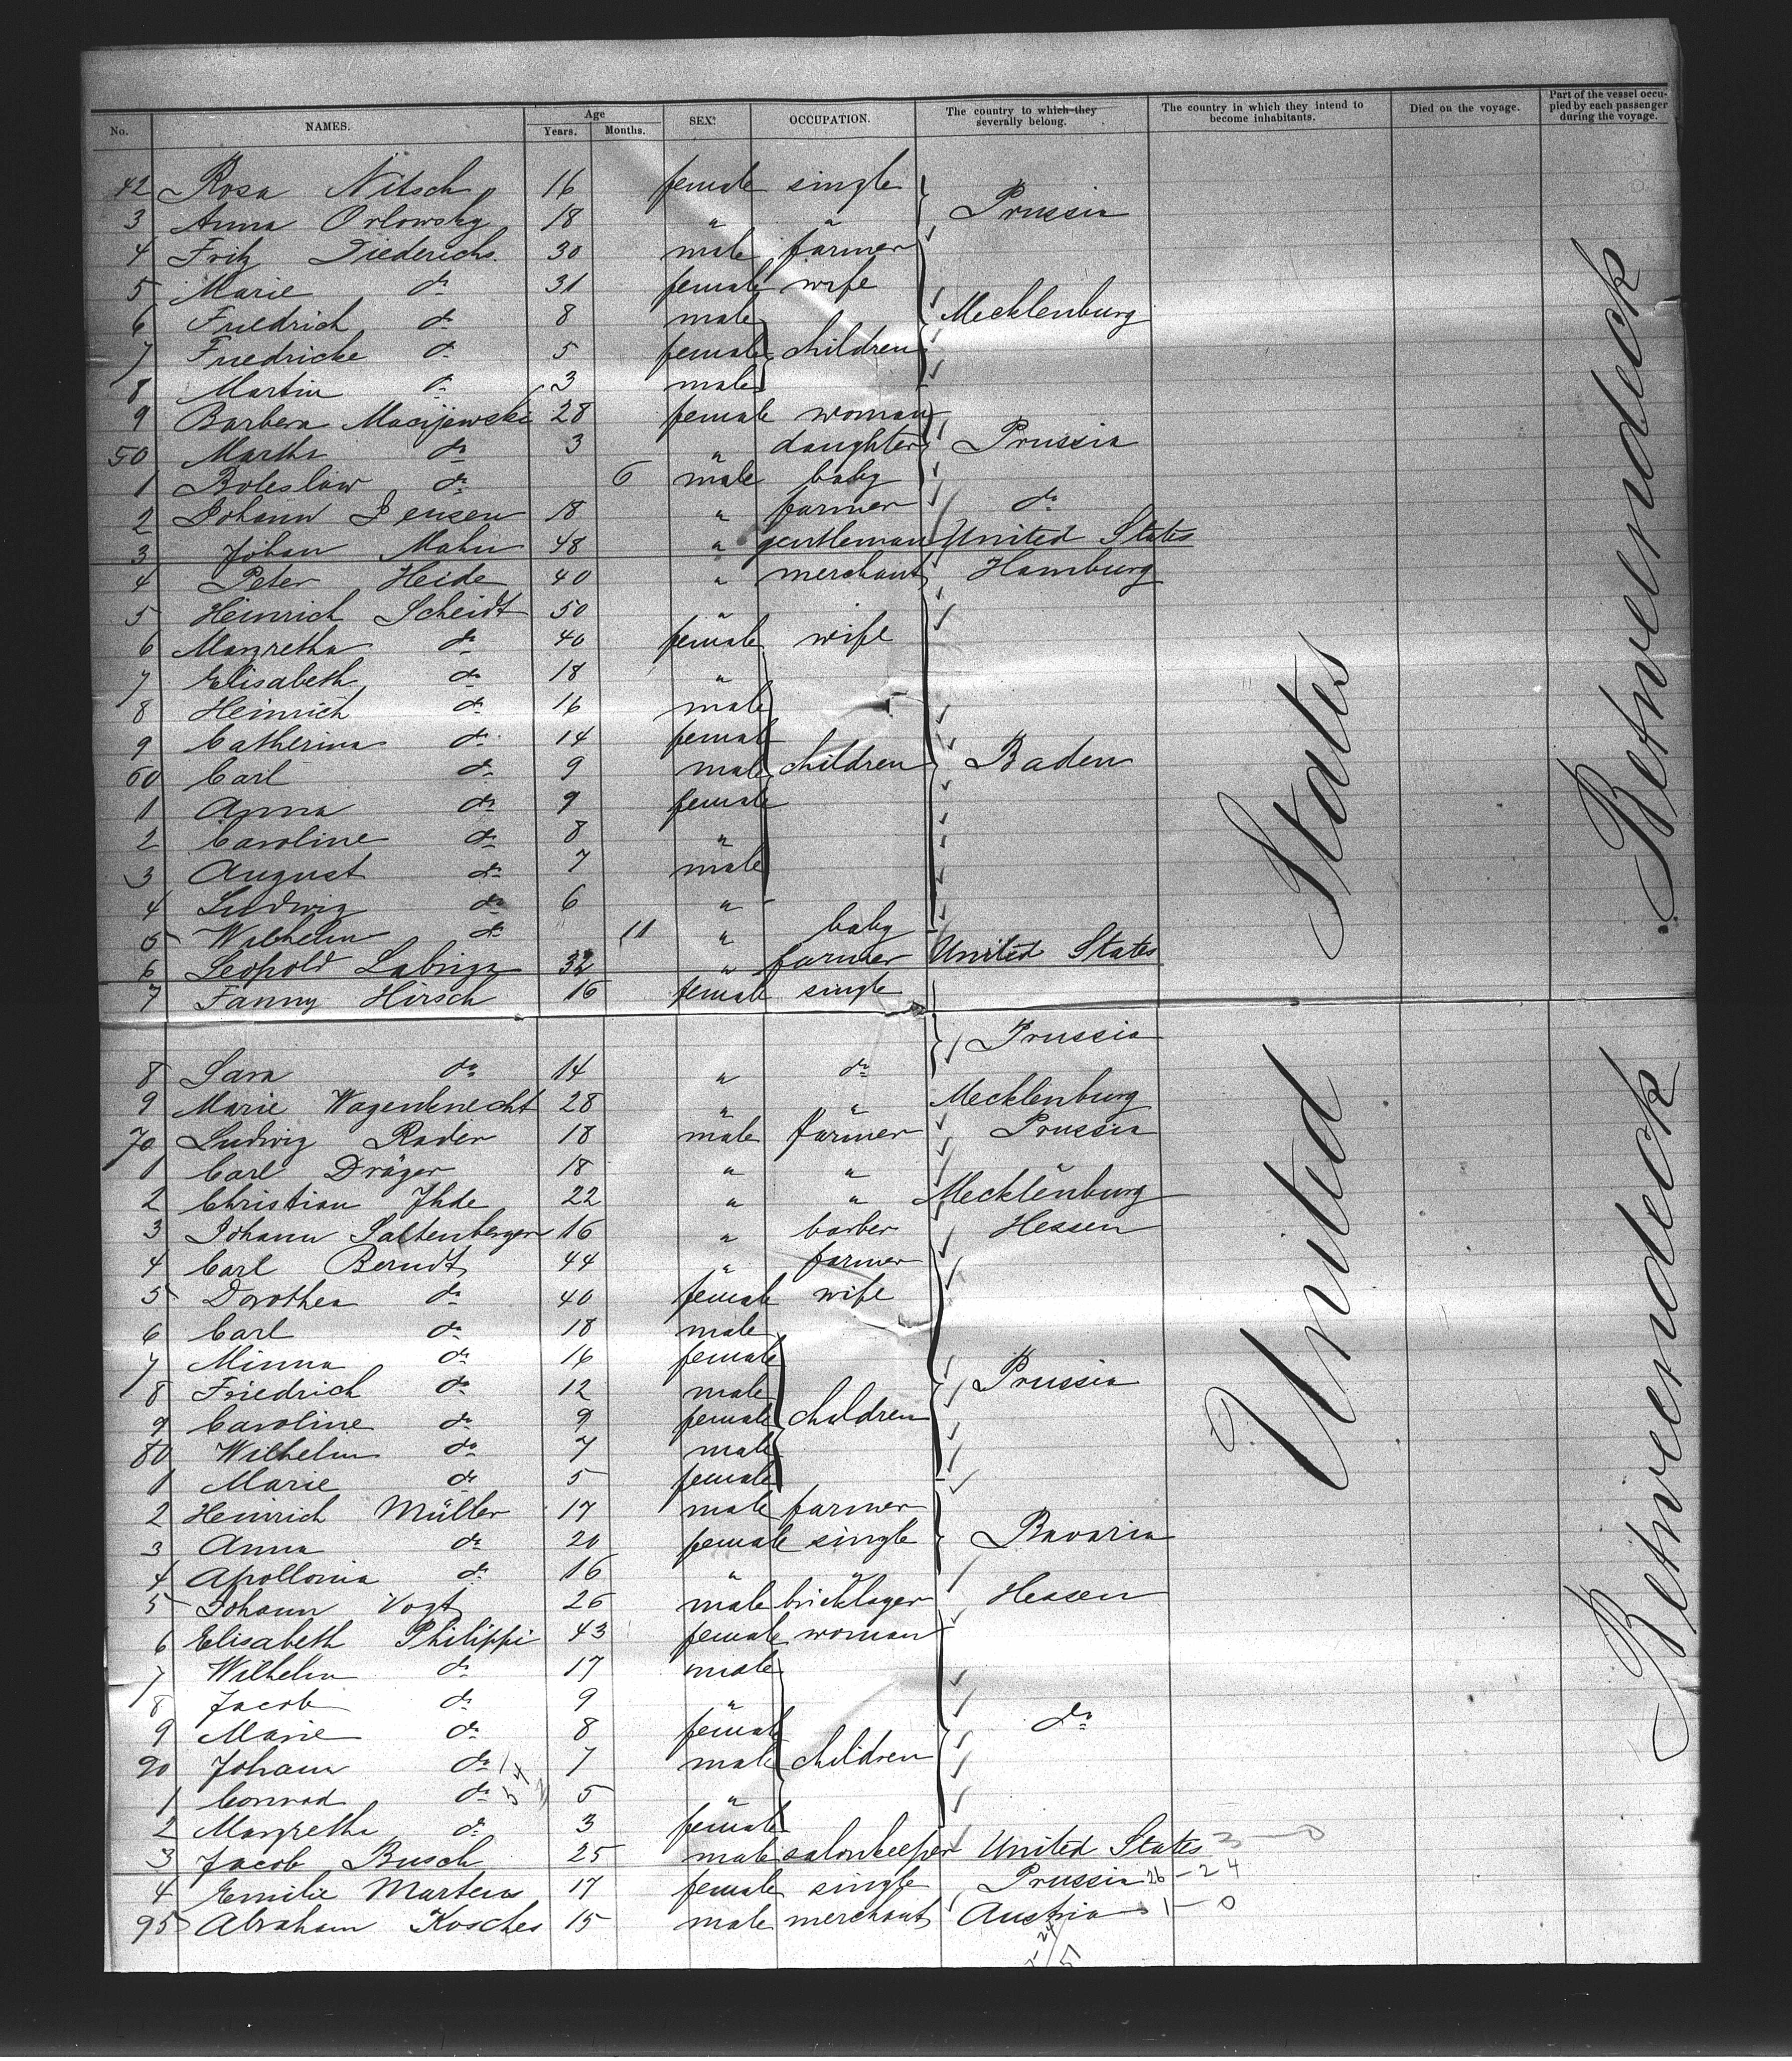 No. NAMES. Age Years. Months. SEX. OCCUPATION. The country to which they severally belong. The country in which they intend to become inhabitants. Died on the voyage. Part of the vessel occupied by each passenger during the voyage.
42 Rosa Nitsch 16 female single
Prussia
3 Anna Orlowsky 18 " "
4 Fritz Diederichs 30 male farmer
5 Marie do 31 female wife
6 Friedrich do 8 male Mecklenburg
7 Friedricke do 5 female children
8 Martin do 3 male
9 Barbera Macijewski 28 female woman
50 Martha do 3 " daughter Prussia
1 Boleslaw do 6 male baby
2 Johann Jensen 18 " farmer do
3 Johan Mahn 48 " gentleman United States
4 Peter Heide 40 " merchant Hamburg
5 Heinrich Scheidt 50 "
6 Margretha do 40 female wife
7 Elisabeth do 18 "
8 Heinrich do 16 male
9 Catherina do 14 female
60 Carl do 9 male children Baden
1 Anna do 9 female
2 Caroline do 8 "
3 August do 7 male
4 Ludwig do 6 "
5 Wilhelm do 11 " baby
6 Leopold 32 " farmer United States
7 Fanny Hirsch 16 female single
Prussia
8 Sara do 14 " do
9 Marie Wagenknecht 28 " " Mecklenburg
70 Ludwig Rader 18 male farmer Prussia
1 Carl Dräger 18 " "
2 Christian Ihde 22 " " Mecklenburg
3 Johann Saltenberger 16 " barber Hessen
4 Carl Berndt 44 " farmer
5 Dorothea do 40 female wife
6 Carl do 18 male
7 Minna do 16 female
8 Friedrich do 12 male Prussia
9 Caroline do 9 female children
80 Wilhelm do 7 male
1 Marie do 5 female
2 Heinrich Müller 17 male farmer
3 Anna do 20 female single Bavaria
4 Apollonia do 16 " "
5 Johann Vogt 26 male bricklayer Hessen
6 Elisabeth Philippi 43 female woman
7 Wilhelm do 17 male
8 Jacob do 9 "
9 Marie do 8 female do
90 Johann do 7 male children
1 Conrad do 5 "
2 Margretha do 3 female
3 Jacob Busch 25 male salonkeeper United States 3 - 0
4 Emilie Martens 17 female single Prussia 26 - 24
95 Abraham Kosches 15 male merchant Austria 1 - 0
United States
Betweendeck
Betweendeck